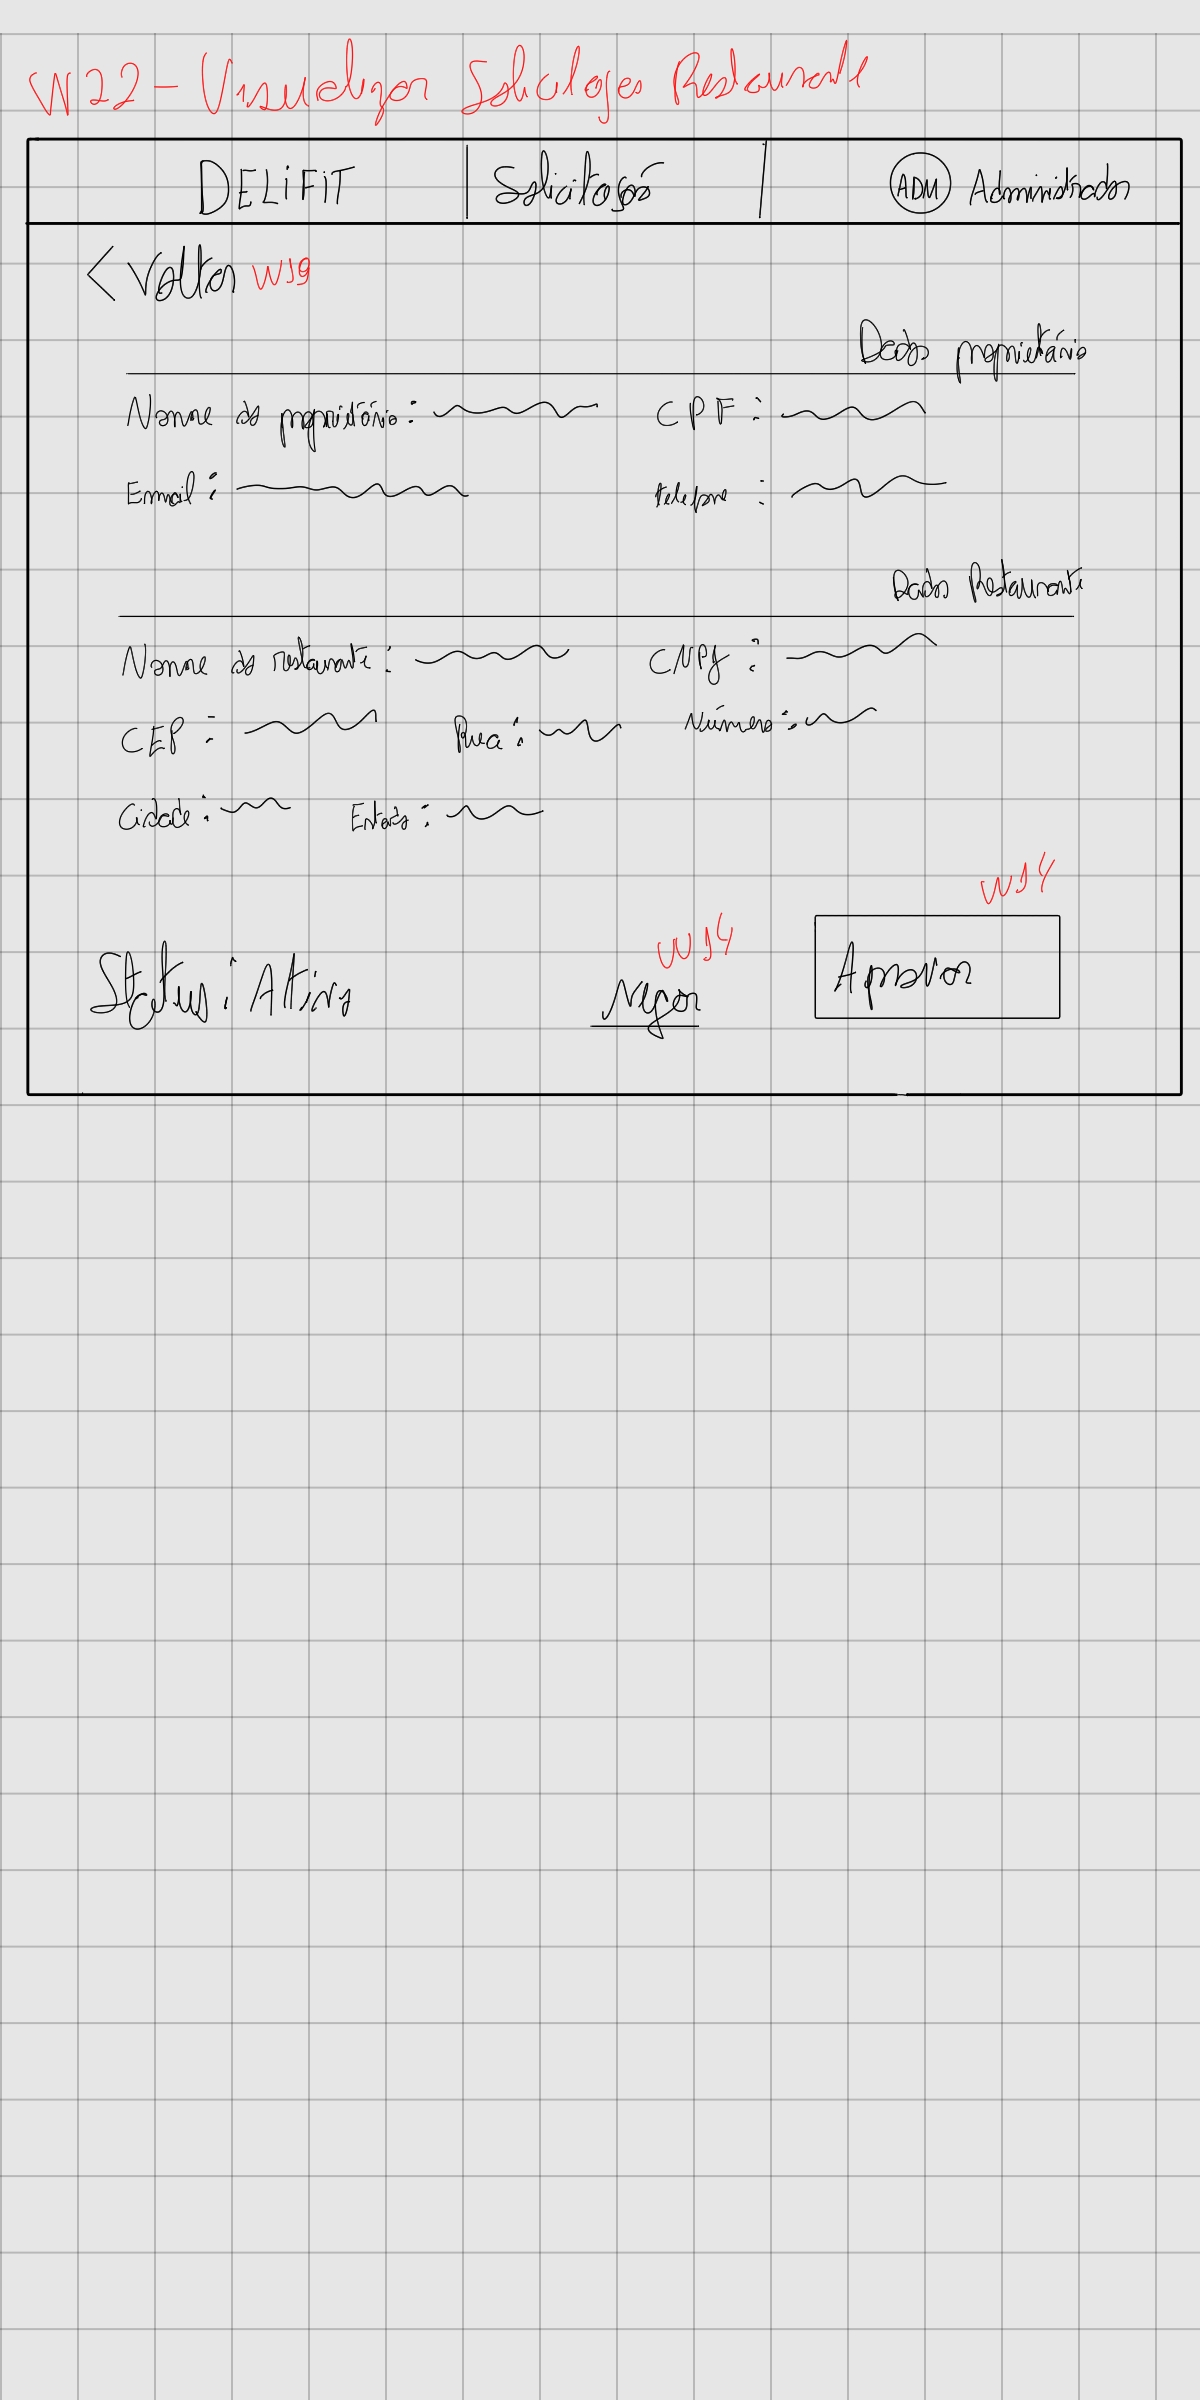 W22 - Visualizar Solicitações Restaurante
DELiFiT | Solicitações | ADM Administrador
< Voltar W19
Dados proprietário
Nome do proprietário: CPF:
Email: telefone:
Dados Restaurante
Nome do restaurante: CNPJ:
CEP: Rua: Número:
Cidade: Estado:
W14
W14
Status: Ativo Negar Aprovar